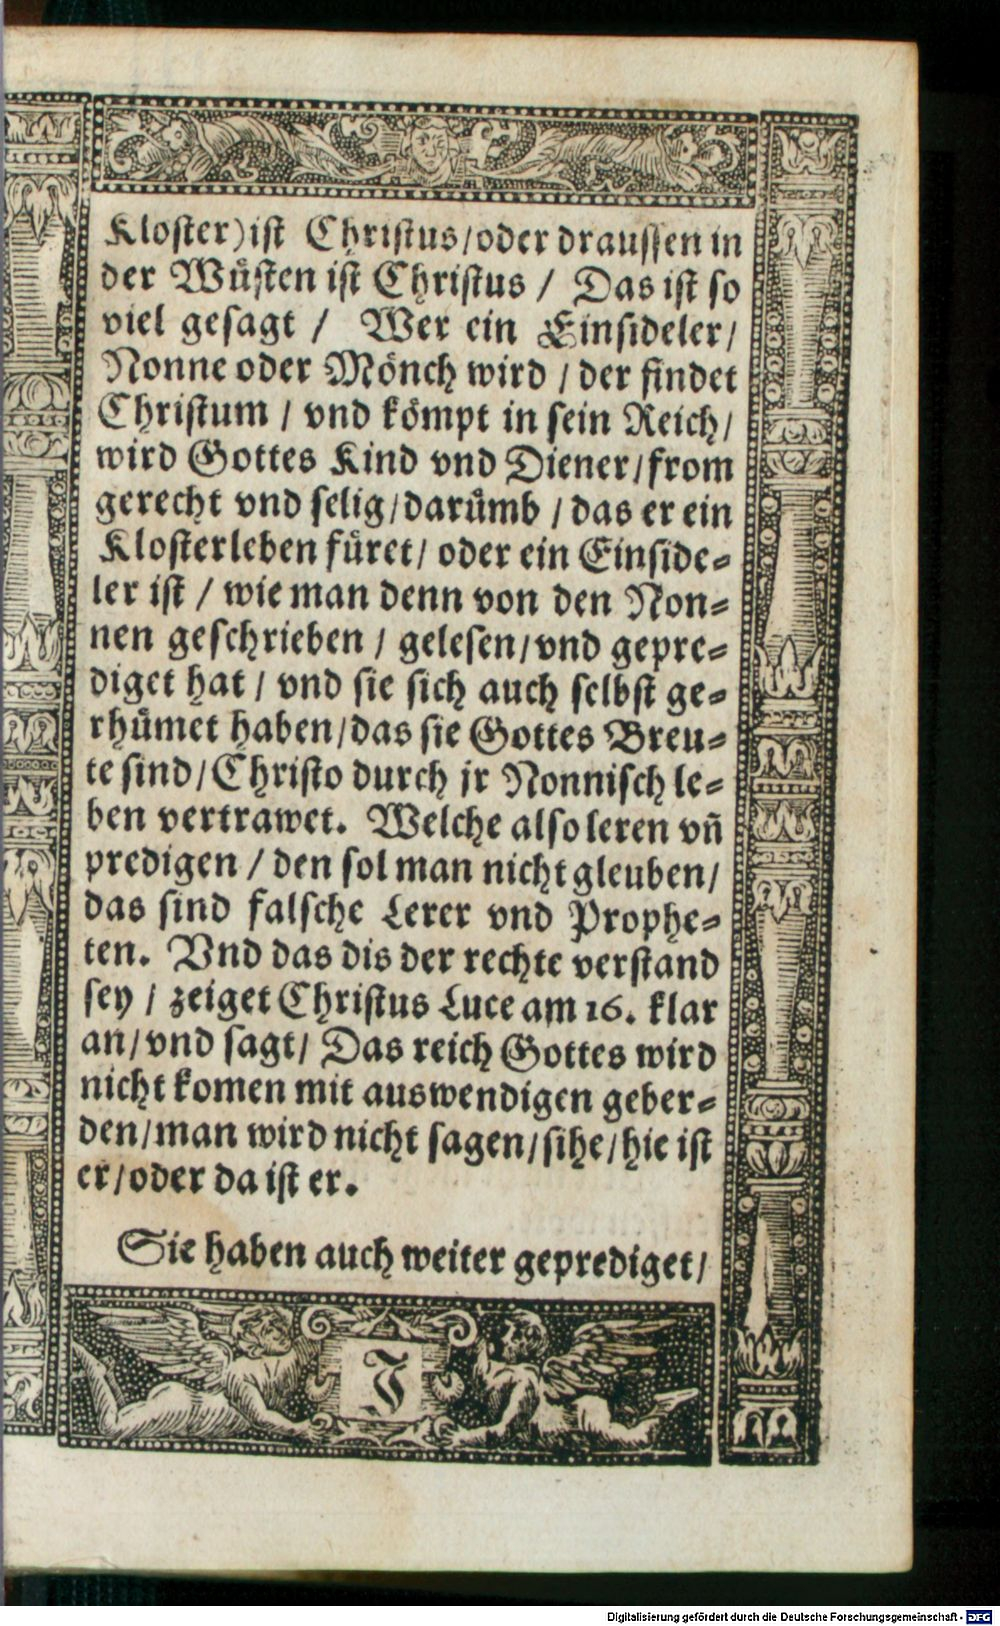 Kloster) ist Christus/oder draussen in
der Wuͤsten ist Christus / Das ist so
viel gesagt / Wer ein Einsideler/
Nonne oder Moͤnch wird / der findet
Christum / vnd koͤmpt in sein Reich/
wird Gottes Kind vnd Diener/from
gerecht vnd selig/daruͤmb / das er ein
Klosterleben fuͤret/ oder ein Einside⸗
ler ist / wie man denn von den Non⸗
nen geschrieben / gelesen/vnd gepre⸗
diget hat / vnd sie sich auch selbst ge⸗
rhuͤmet haben/das sie Gottes Breu⸗
te sind/Christo durch jr Nonnisch le⸗
ben vertrawet. Welche also leren vñ
predigen / den sol man nicht gleuben/
das sind falsche Lerer vnd Prophe⸗
ten. Vnd das dis der rechte verstand
sey / zeiget Christus Luce am 16. klar
an/vnd sagt/ Das reich Gottes wird
nicht komen mit auswendigen geber⸗
den/man wird nicht sagen/sihe/hie ist
er/oder da ist er.
Sie haben auch weiter geprediget/
F
Digitalisierung gefördert durch die Deutsche Forschungsgemeinschaft - DFG